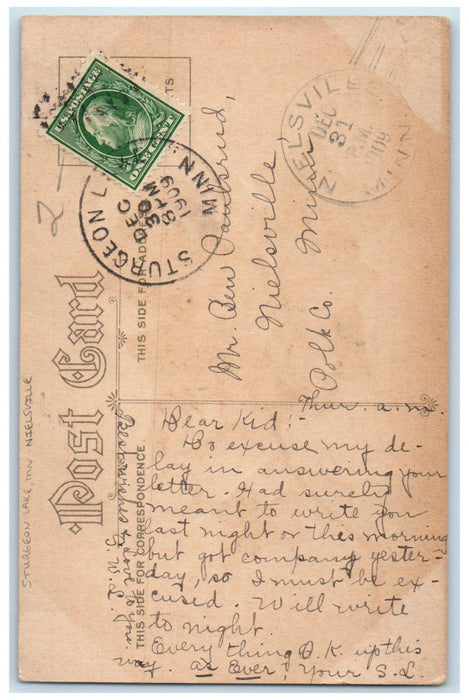 U.S. POSTAGE
ONE CENT
STURGEON LAKE MINN
DEC
30
8 PM
1909
NIELSVILLE MINN
DEC
31
P.M.
1909
Post Card
THIS SIDE FOR ADDRESS
THIS SIDE FOR CORRESPONDENCE.
Mr. Ben Paulsrud,
Nielsville
Polk Co. Minn.
Thur. a.m.
Dear Kid:-
Do excuse my de-
lay in answering your
letter. Had surely
meant to write you
last night or this morning
but got company yester-
day, so I must be ex-
cused. Will write
to night.
Every thing O.K. up this
way. as Ever, Your S.L.
Best wishes to
STURGEON LAKE, MN NIELSVILLE
2-